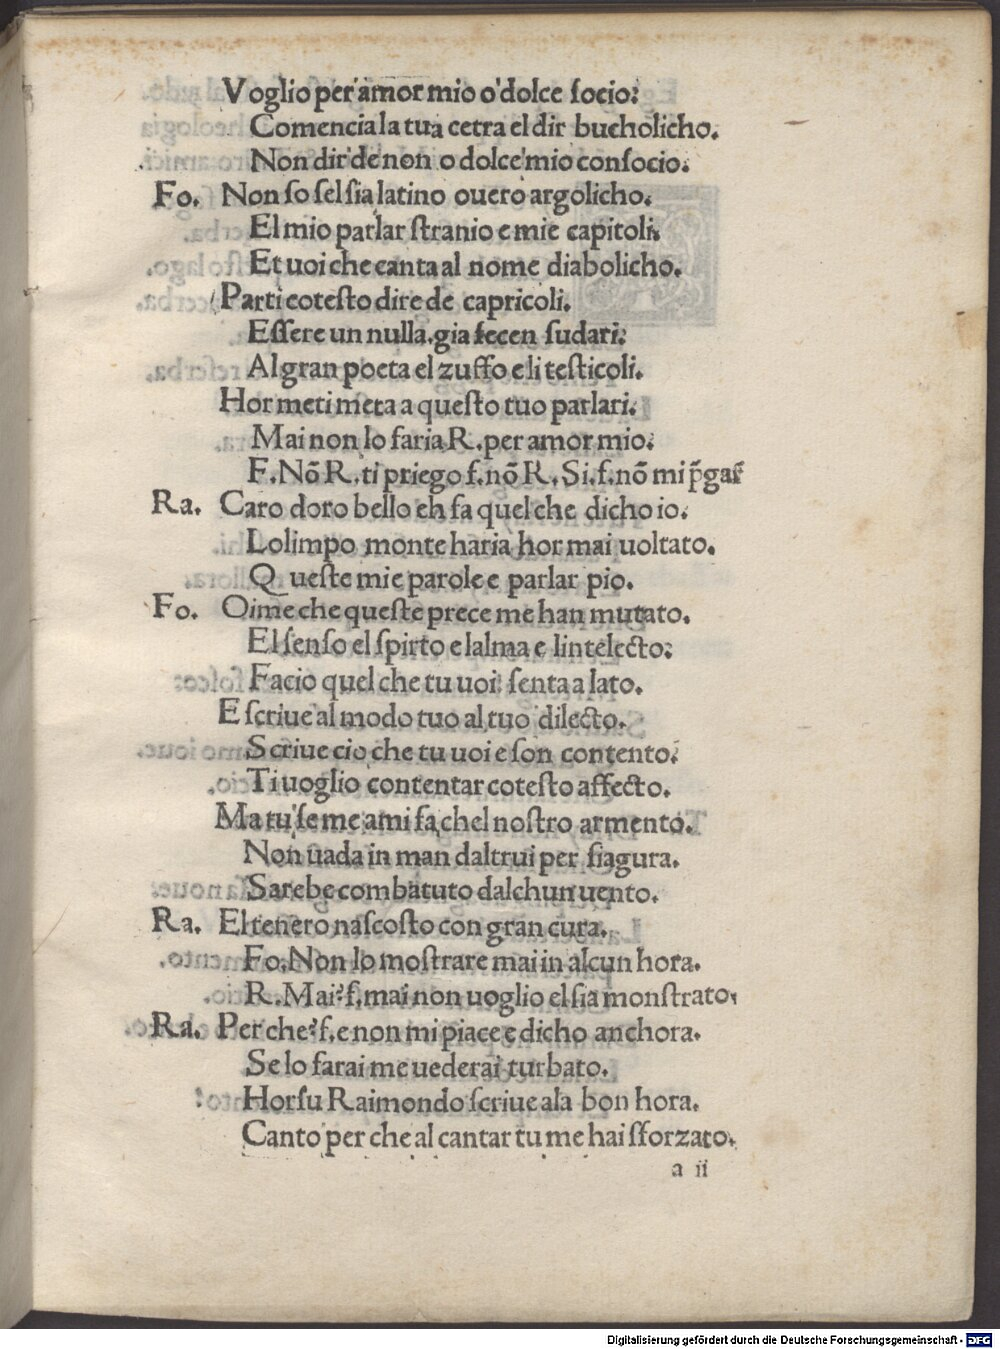 Voglio per amor mio o dolce ſocio:
Comencia la tua cetra el dir bucholicho.
Non dir de non o dolce mio conſocio.
Fo. Non ſo ſel ſia latino ouero argolicho.
El mio parlar ſtranio e mie capitoli.
Et uoi che canta al nome diabolicho.
Parti coteſto dire de capricoli.
Eſſere un nulla. gia fecen ſudari:
Al gran poeta el zuffo e li teſticoli.
Hor meti meta a queſto tuo parlari.
Mai non lo faria R. per amor mio:
F. Nõ R. ti priego f. nõ R. Si. f. nõ mi p̃gar̃
Ra. Caro doro bello eh fa quel che dicho io.
Lolimpo monte haria hor mai uoltato.
Queſte mie parole e parlar pio.
Fo. Oime che queſte prece me han mutato.
El ſenſo el ſpirto e lalma e lintelecto:
Facio quel che tu uoi: ſenta a lato.
E ſcriue al modo tuo al tuo dilecto.
Scriue cio che tu uoi e ſon contento:
Ti uoglio contentar coteſto affecto.
Ma tu ſe me ami fa chel noſtro armento.
Non uada in man daltrui per ſiagura.
Sarebe combatuto dalchun uento.
Ra. El tenero naſcoſto con gran cura.
Fo. Non lo moſtrare mai in alcun hora.
R. Mai? f. mai non uoglio el ſia monſtrato.
Ra. Per che? f. e non mi piace e dicho anchora.
Se lo farai me uederai turbato.
Horſu Raimondo ſcriue ala bon hora.
Canto per che al cantar tu me hai ſforzato.
a ii
Digitalisierung gefördert durch die Deutsche Forschungsgemeinschaft - DFG